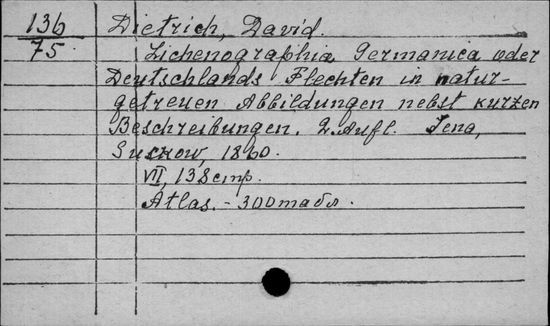 136
75
Dietrich, David.
Lichenographia Germanica oder
Deutschlands Flechten in natur-
getreuen Abbildungen nebst kurzen
Beschreibungen. 2. Aufl. Jena,
Suckow, 1860.
VII, 138 стр.
Atlas. - 300 табл.